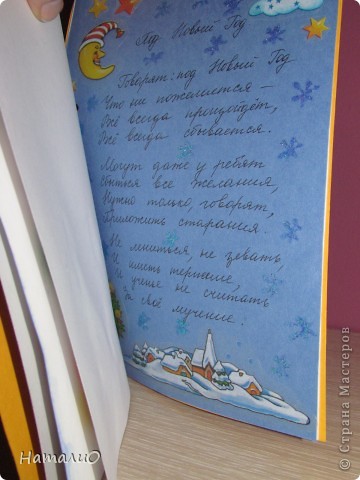 Под Новый Год
Говорят: под Новый Год
Что ни пожелается –
Всё всегда произойдёт,
Всё всегда сбывается.
Могут даже у ребят
сбыться все желания,
Нужно только, говорят,
приложить старания.
Не лениться, не зевать,
И иметь терпение,
И ученье не считать
За своё мучение.
НаталиО
© Страна Мастеров